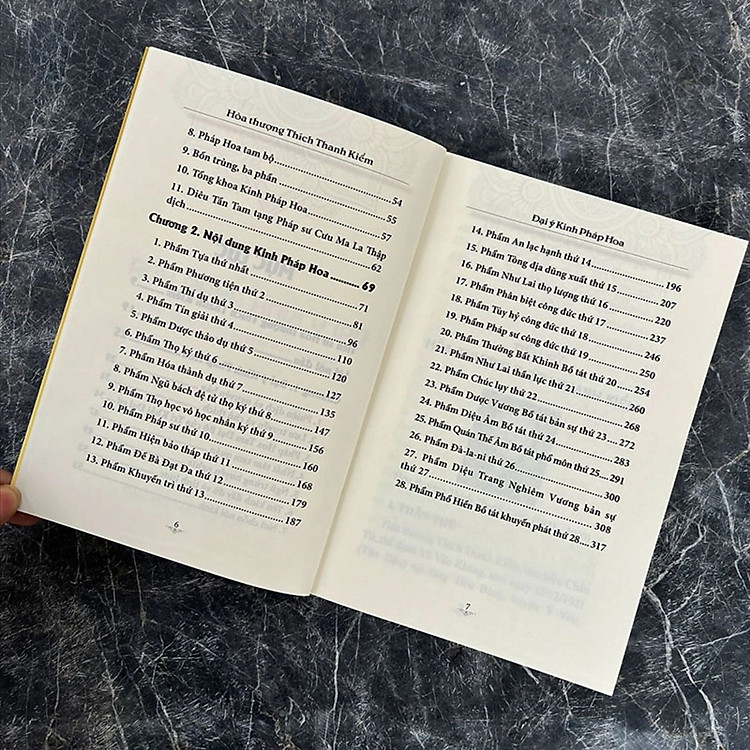 Hòa thượng Thích Thanh Kiểm
8. Pháp Hoa tam bộ......54
9. Bốn trùng, ba phần......55
10. Tổng khoa Kinh Pháp Hoa......57
11. Diêu Tần Tam tạng Pháp sư Cưu Ma La Thập
dịch......62
Chương 2. Nội dung Kinh Pháp Hoa......69
1. Phẩm Tựa thứ nhất......71
2. Phẩm Phương tiện thứ 2......81
3. Phẩm Thí dụ thứ 3......96
4. Phẩm Tín giải thứ 4......110
5. Phẩm Dược thảo dụ thứ 5......120
6. Phẩm Thọ ký thứ 6......127
7. Phẩm Hóa thành dụ thứ 7......135
8. Phẩm Ngũ bách đệ tử thọ ký thứ 8......147
9. Phẩm Thọ học vô học nhân ký thứ 9......156
10. Phẩm Pháp sư thứ 10......160
11. Phẩm Hiện bảo tháp thứ 11......168
12. Phẩm Đề Bà Đạt Đa thứ 12......179
13. Phẩm Khuyến trì thứ 13......187
6
Đại ý Kinh Pháp Hoa
14. Phẩm An lạc hạnh thứ 14......196
15. Phẩm Tòng địa dũng xuất thứ 15......207
16. Phẩm Như Lai thọ lượng thứ 16......220
17. Phẩm Phân biệt công đức thứ 17......237
18. Phẩm Tùy hỷ công đức thứ 18......246
19. Phẩm Pháp sư công đức thứ 19......250
20. Phẩm Thường Bất Khinh Bồ tát thứ 20......254
21. Phẩm Như Lai thần lực thứ 21......260
22. Phẩm Chúc lụy thứ 22......268
23. Phẩm Dược Vương Bồ tát bản sự thứ 23......272
24. Phẩm Diệu Âm Bồ tát thứ 24......283
25. Phẩm Quán Thế Âm Bồ tát phổ môn thứ 25......291
26. Phẩm Đà-la-ni thứ 26......300
27. Phẩm Diệu Trang Nghiêm Vương bản sự
thứ 27......308
28. Phẩm Phổ Hiền Bồ tát khuyến phát thứ 28......317
7